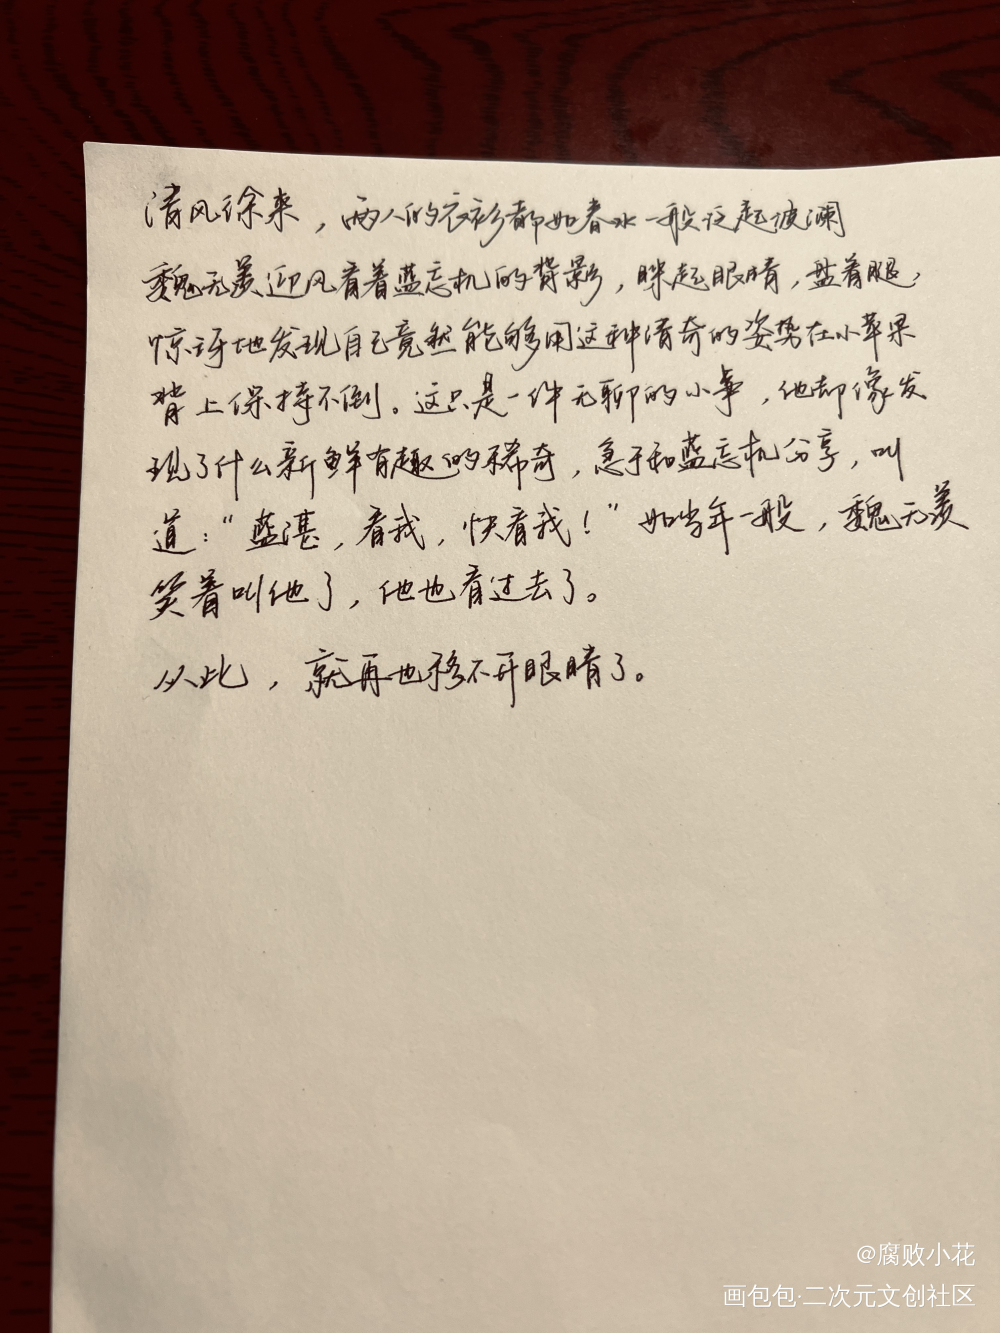 清风徐来，两人的衣衫都如春水一般泛起波澜
魏无羡迎风看着蓝忘机的背影，眯起眼睛，盘着腿，
惊讶地发现自己竟然能够用这种清奇的姿势在小苹果
背上保持不倒。这只是一件无聊的小事，他却像发
现了什么新鲜有趣的稀奇，急于和蓝忘机分享，叫
道：“蓝湛，看我，快看我！”如当年一般，魏无羡
笑着叫他了，他也看过去了。
从此，就再也移不开眼睛了。
@腐败小花
画包包·二次元文创社区